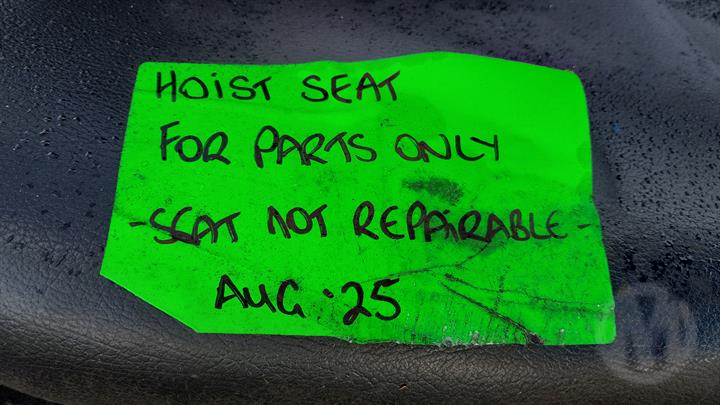 HOIST SEAT
FOR PARTS ONLY
-SEAT NOT REPAIRABLE-
AUG '25